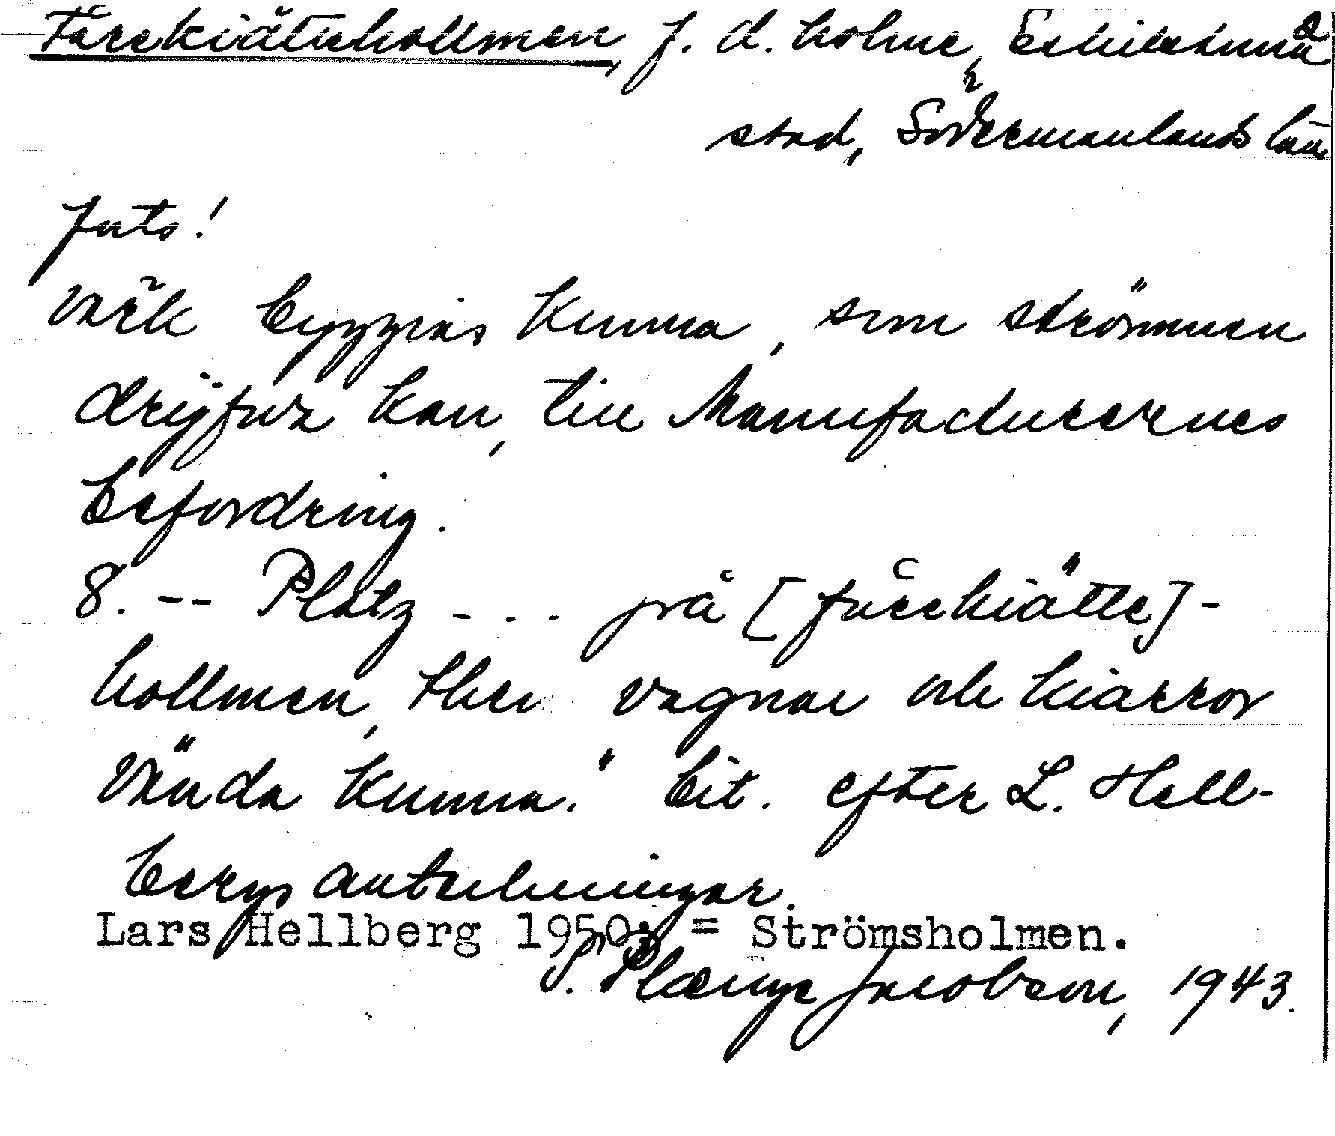 Fårekiättehollmen, f. d. holme, Eskilstuna
stad, Södermanlands län
forts!
värk byggias kunna, som strömmen
drijfwa kan, till Manufacturernes
befordring.
8. -- Platz - .. på [fårekiätte]-
hollmen, ther vagnar och kiärror
vända kunna." Cit. efter L. Hell-
bergs anteckningar.
Lars Hellberg 1950: = Strömsholmen.
S. Plænge Jacobson, 1943.